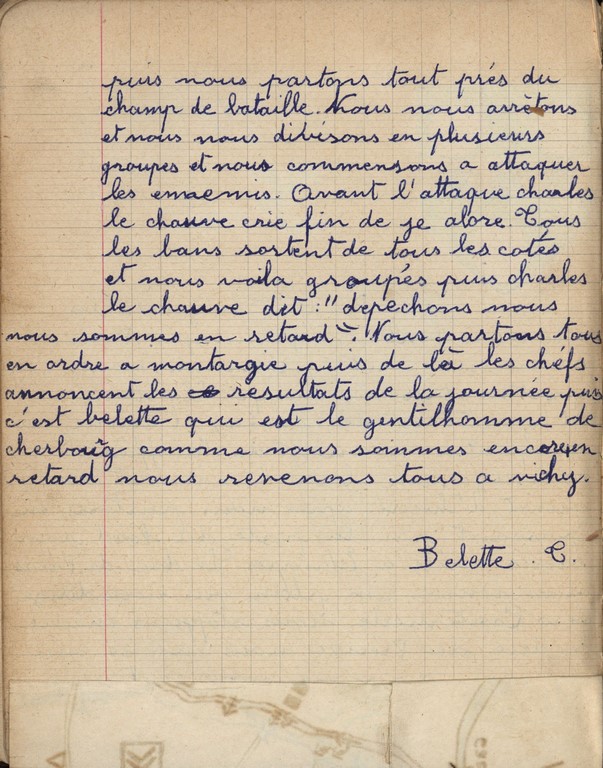 puis nous partons tout prés du
champ de bataille. Nous nous arrètons
et nous nous divisons en plusieurs
groupes et nous commensons a attaquer
les ennemis. Avant l'attaque charles
le chauve crie fin de je alore. Tous
les bans sortent de tous les cotés
et nous voila groupés puis charles
le chauve dit : "depechons nous
nous sommes en retard". Nous partons tous
en ordre a montargie puis de là les chéfs
annoncent les résultats de la journée puis
c'est belette qui est le gentilhomme de
cherbourg comme nous sommes encore en
retard nous revenons tous a vichy.
Belette . C.